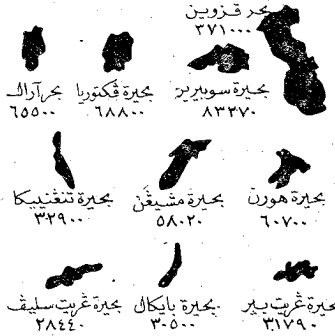 بحر قزوين
٣٧١٠٠٠
بحيرة سوبيرير
٨٣٢٧٠
بحيرة ڤكتوريا
٦٨٨٠٠
بحر آرال
٦٥٥٠٠
بحيرة هورن
٦٠٧٠٠
بحيرة متشيغَن
٥٨٠٢٠
بحيرة تنغنييكا
٣٢٩٠٠
بحيرة غريت بير
٣١٧٩٠
بحيرة بايكال
٣٠٥٠٠
بحيرة غريت سليڤ
٢٨٤٤٠